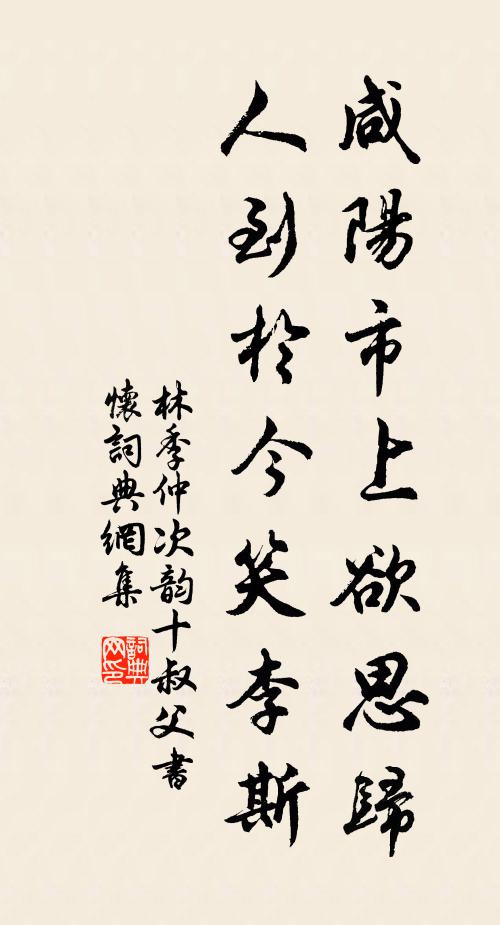 咸陽市上欲思歸
人到於今笑李斯
林季仲次韵十叔父書
懷詞典網集
詞典网印